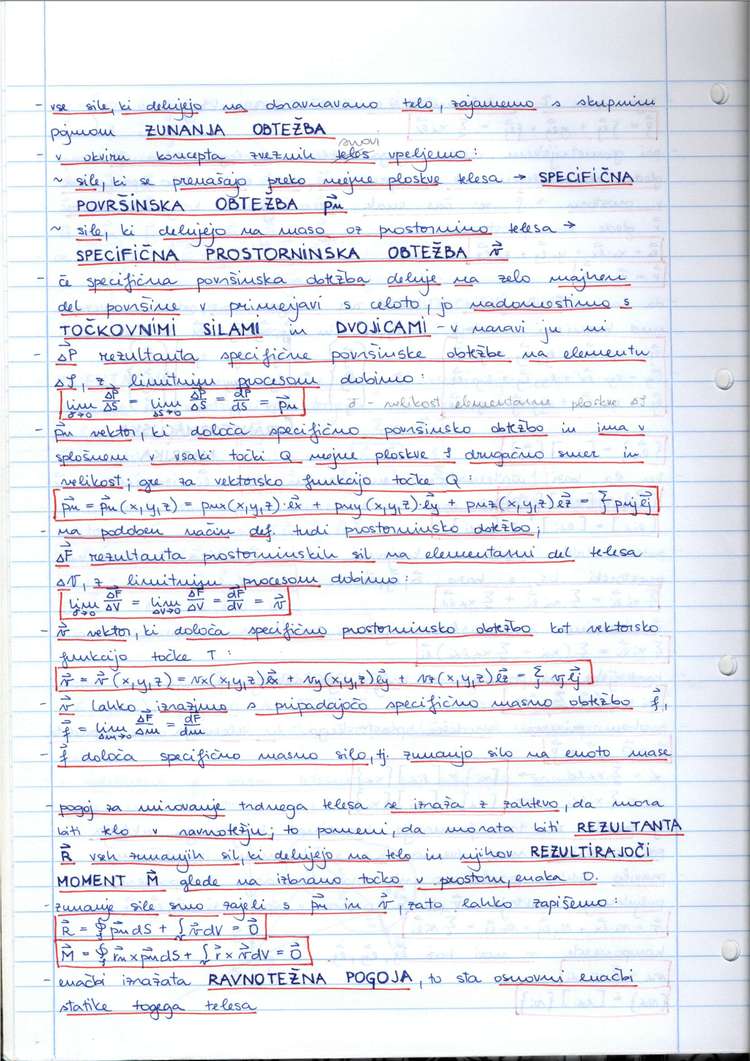 - vse sile, ki delujejo na obravnavano telo, zajamemo s skupnim
pojmom ZUNANJA OBTEŽBA
snovi
- v okviru koncepta zveznih teles vpeljemo:
~ sile, ki se prenašajo preko mejne ploskve telesa → SPECIFIČNA
POVRŠINSKA OBTEŽBA p⃗n
~ sile, ki delujejo na maso oz prostornino telesa →
SPECIFIČNA PROSTORNINSKA OBTEŽBA v⃗
- če specifična površinska obtežba deluje na zelo majhen
del površine v primerjavi s celoto, jo nadomestimo s
TOČKOVNIMI SILAMI in DVOJICAMI - v naravi ju ni
- ΔP⃗ rezultanta specifične površinske obtežbe na elementu
Δ𝒮, z limitnim procesom dobimo:
lim δ→0 ΔP⃗/ΔS = lim ΔS→0 ΔP⃗/ΔS = dP⃗/dS = p⃗n δ - velikost elementarne ploskve Δ𝒮
- p⃗n vektor, ki določa specifično površinsko obtežbo in ima v
splošnem v vsaki točki Q mejne ploskve 𝒮 drugačno smer in
velikost; gre za vektorsko funkcijo točke Q:
p⃗n = p⃗n (x,y,z) = pnx(x,y,z)·e⃗x + pny(x,y,z)·e⃗y + pnz(x,y,z)e⃗z = Σj pnj e⃗j
- na podoben način def. tudi prostorninsko obtežbo;
ΔF⃗ rezultanta prostorninskih sil na elementarni del telesa
Δ𝒱, z limitnim procesom dobimo:
lim δ→0 ΔF⃗/ΔV = lim ΔV→0 ΔF⃗/ΔV = dF⃗/dV = v⃗
- v⃗ vektor, ki določa specifično prostorninsko obtežbo kot vektorsko
funkcijo točke T:
v⃗ = v⃗(x,y,z) = vx(x,y,z)e⃗x + vy(x,y,z)e⃗y + vz(x,y,z)e⃗z = Σj vj e⃗j
- v⃗ lahko izrazimo s pripadajočo specifično masno obtežbo f⃗,
f⃗ = lim Δm→0 ΔF⃗/Δm = dF⃗/dm
- f⃗ določa specifično masno silo, tj. zunanjo silo na enoto mase
- pogoj za mirovanje trdnega telesa se izraža z zahtevo, da mora
biti telo v ravnotežju; to pomeni, da morata biti REZULTANTA
R⃗ vseh zunanjih sil, ki delujejo na telo in njihov REZULTIRAJOČI
MOMENT M⃗ glede na izbrano točko v prostoru, enaka 0.
- zunanje sile smo zajeli s p⃗n in v⃗, zato lahko zapišemo:
R⃗ = ∮𝒮 p⃗n dS + ∫𝒱 v⃗ dV = 0⃗
M⃗ = ∮𝒮 r⃗n × p⃗n dS + ∫𝒱 r⃗ × v⃗ dV = 0⃗
- enačbi izražata RAVNOTEŽNA POGOJA, to sta osnovni enačbi
statike togega telesa